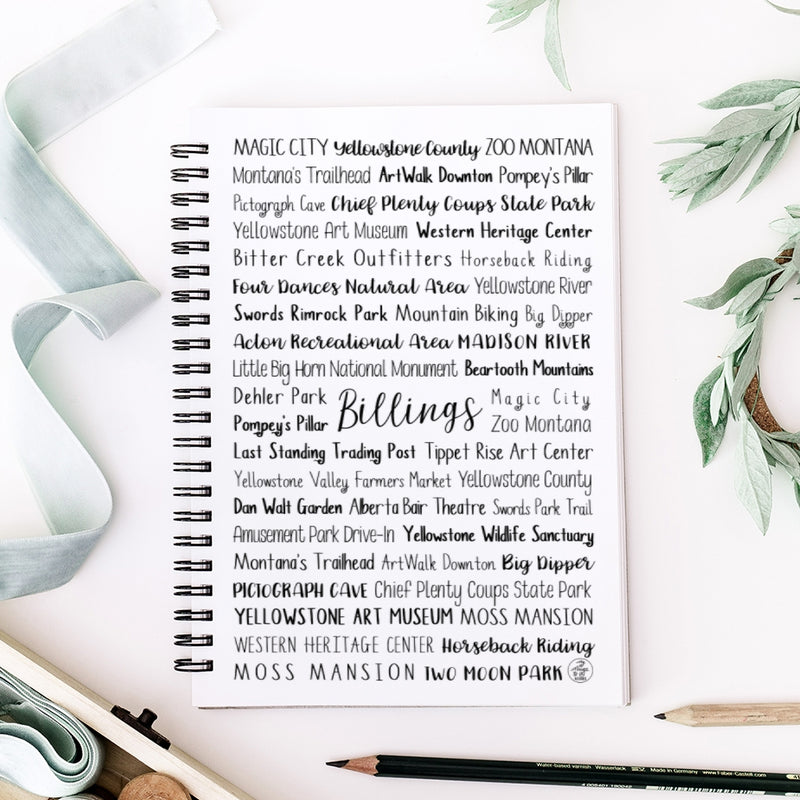 MAGIC CITY Yellowstone County ZOO MONTANA
Montana's Trailhead ArtWalk Downton Pompey's Pillar
Pictograph Cave Chief Plenty Coups State Park
Yellowstone Art Museum Western Heritage Center
Bitter Creek Outfitters Horseback Riding
Four Dances Natural Area Yellowstone River
Swords Rimrock Park Mountain Biking Big Dipper
Acton Recreational Area MADISON RIVER
Little Big Horn National Monument Beartooth Mountains
Dehler Park Magic City
Billings
Pompey's Pillar Zoo Montana
Last Standing Trading Post Tippet Rise Art Center
Yellowstone Valley Farmers Market Yellowstone County
Dan Walt Garden Alberta Bair Theatre Swords Park Trail
Amusement Park Drive-In Yellowstone Wildlife Sanctuary
Montana's Trailhead ArtWalk Downton Big Dipper
PICTOGRAPH CAVE Chief Plenty Coups State Park
YELLOWSTONE ART MUSEUM MOSS MANSION
WESTERN HERITAGE CENTER Horseback Riding
MOSS MANSION TWO MOON PARK
Water-based varnish Wasserlack Made in Germany www.Faber-Castell.com